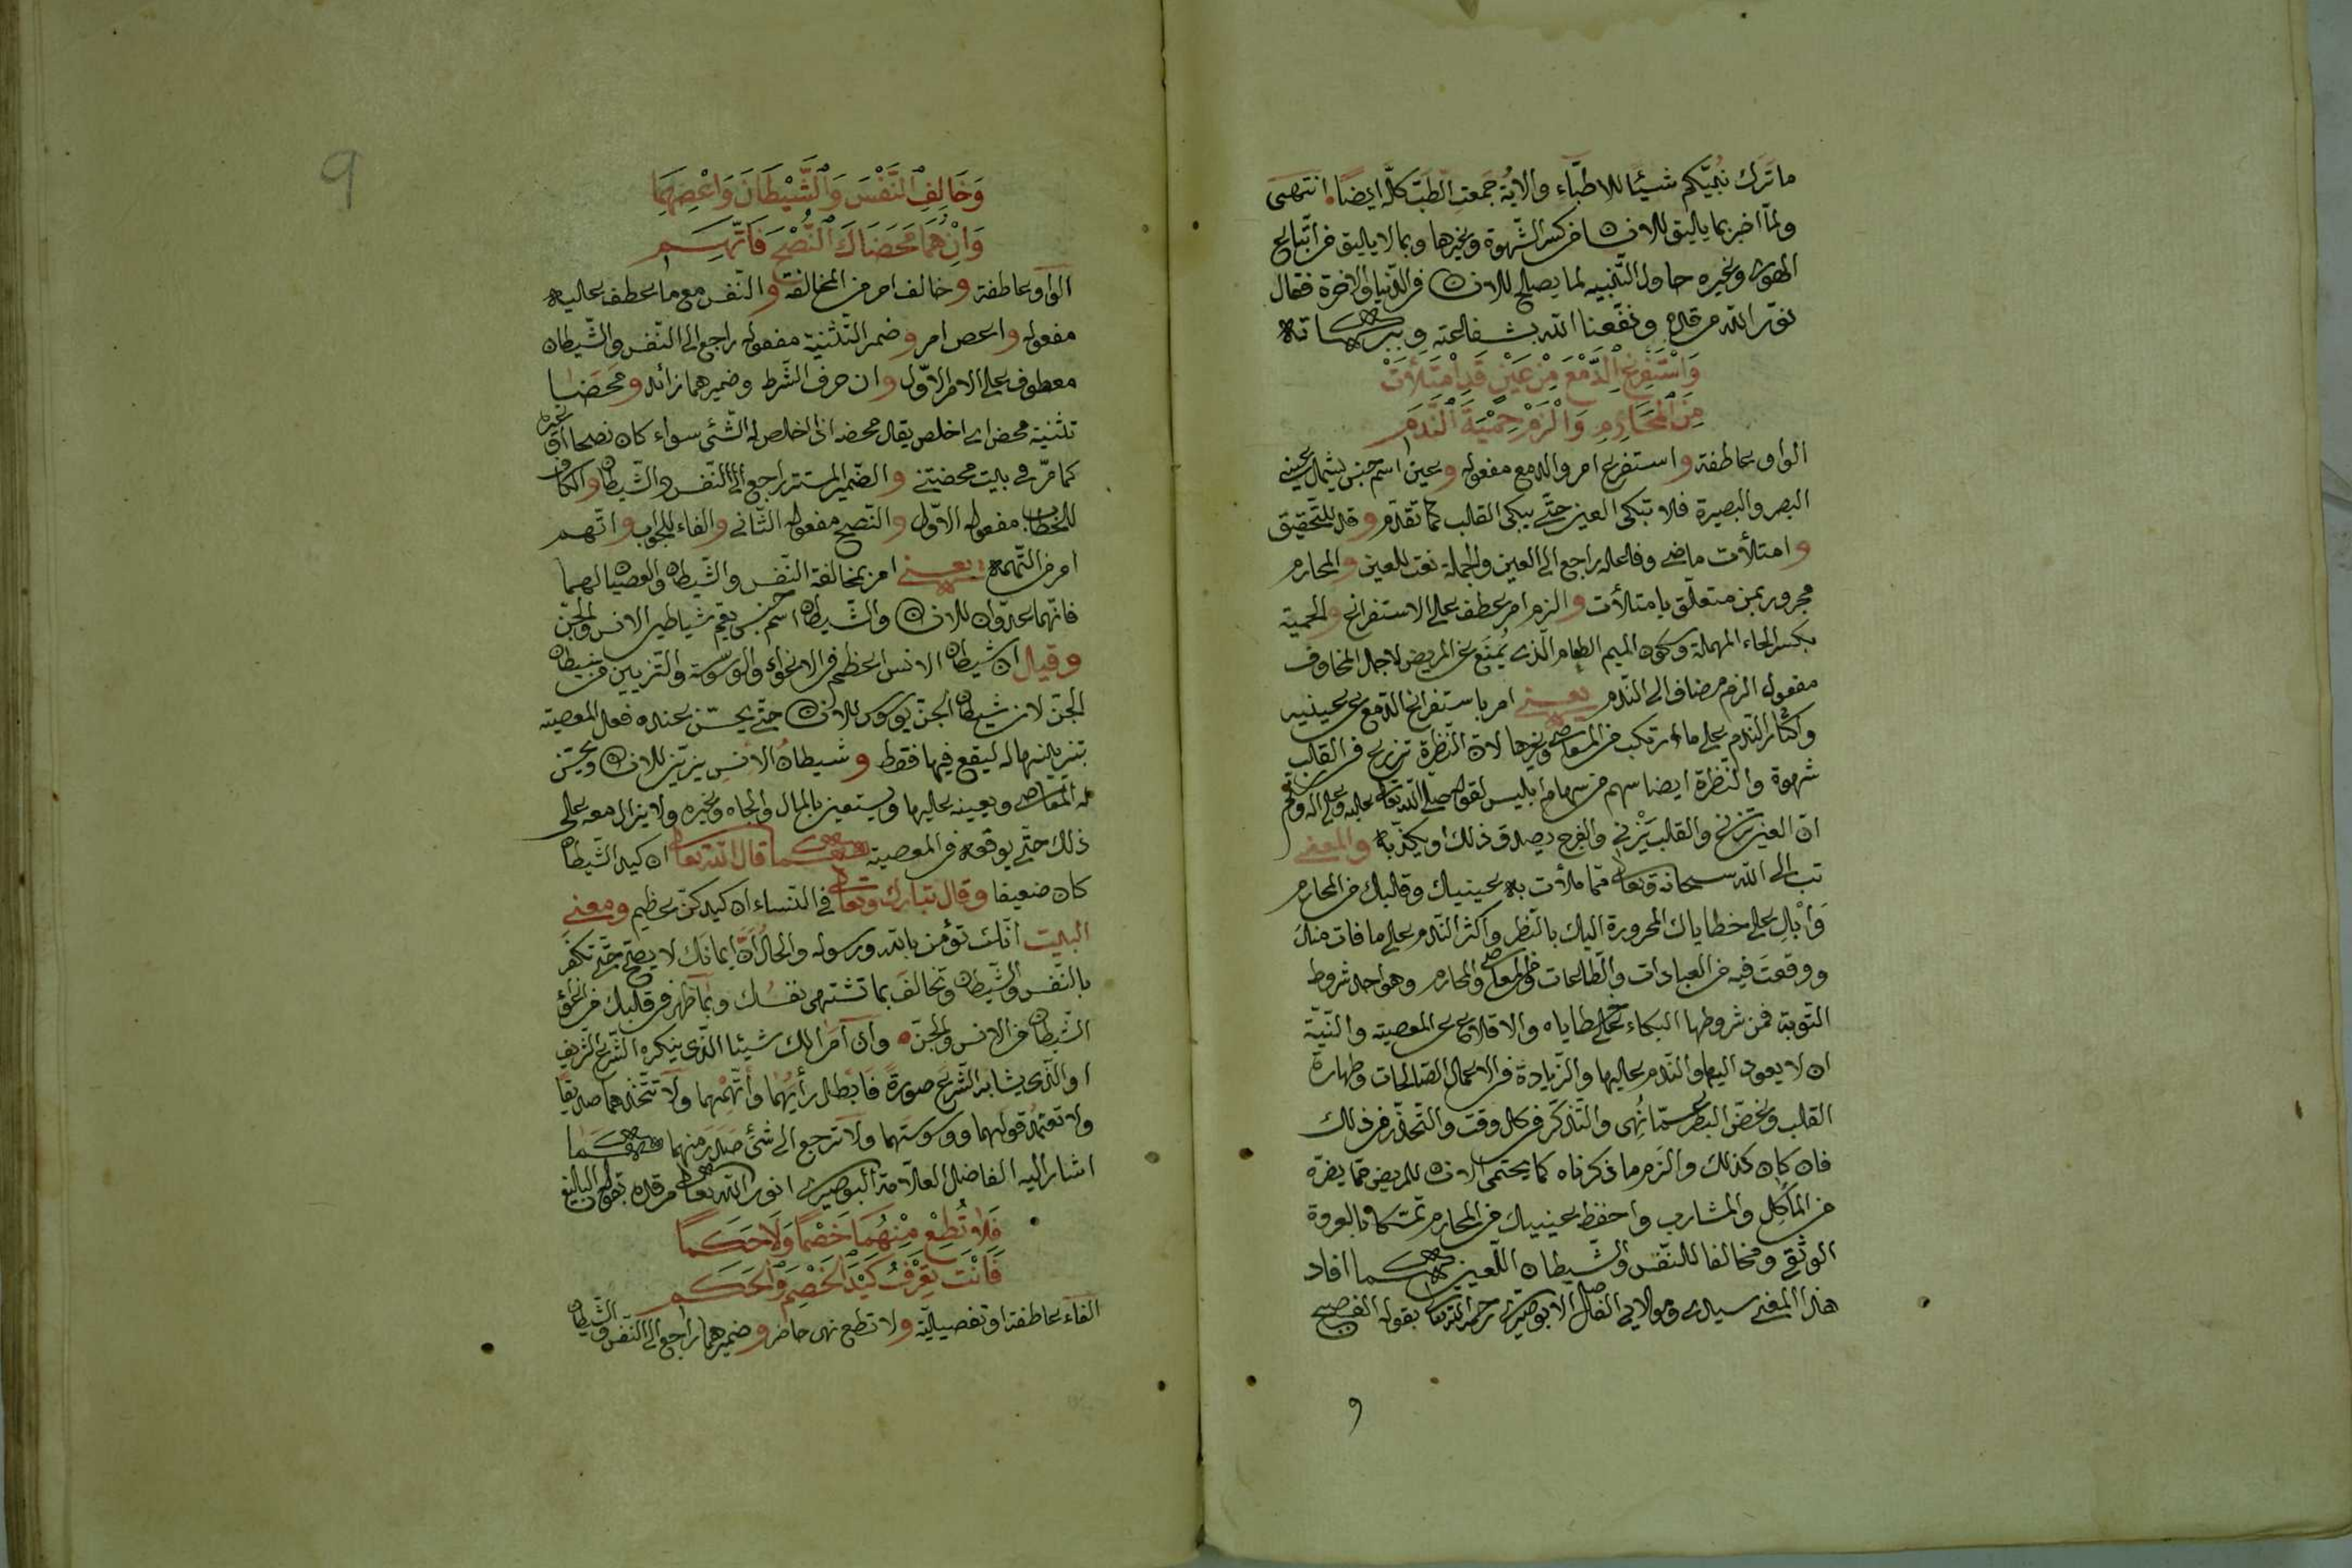 ما ترك نبيّكم شيئًا للاطبّاء والاية جمعت الطب كلّه ايضا انتهى
ولمّا اخبر بما يليق للانسان من كسر الشّهوة وغيرها وبما لا يليق من اتّباع
الهوى وغيره حاول التّنبيه لما يصلح للانسان فى الدّنيا والاخرة فقال
نوّر الله مرقده ونفّعنا الله بشفاعته وببركاته
وَاسْتَفْرِغِ الدَّمْعَ مِنْ عَيْنٍ قَدِ امْتَلَأَتْ
مِنَ الْمَحَارِمِ وَالْزَمْ حِمْيَةَ النَّدَمِ
الواو عاطفة واستفرغ امر والدمع مفعوله وعين اسم جنس يشمل عينى
البصر والبصيرة فلا تبكى العين حتّى يبكى القلب كما تقدّم وقد للتّحقيق
وامتلأت ماضى وفاعله راجع الى العين والجملة نعت للعين والمحارم
مجرور بمن متعلّق بامتلأت والزم امر عطف على الاستفراغ والحمية
بكسر الحاء المهملة وسكون الميم الطعام الّذى يُمنَع عن المريض لاجل المخاوف
مفعول الزم مضاف الى النّدم يعنى امر باستفراغ الدّمع عن عينيه
واكثار النّدم على ما ارتكب من المعاصى وغيرها لانّ النّظرة تزرع فى القلب
شهوة والنّظرة ايضا سهم من سهام ابليس لقوله صلى الله تعالى عليه وعلى اله وسلم
انّ العين تزنى والقلب يَزْنى والفرج يصدق ذلك او يكذّبه والمعنى
تب الى الله سبحانه وتعالى ممّا ملأت به عينيك وقلبك من المحارم
وَابْكِ على خطاياك المحرورة اليك بالنّظر واكثر النّدم على ما فات منك
ووقعت فيه من العبادات والطّاعات والمعاصى والمحارم وهو احد شروط
التوبة فمن شروطها البكاء على خطاياه والاقلاع عن المعصية والنّيّة
ان لا يعود اليها والنّدم عليها والزّيادة فى الاعمال الصّالحات وطهارة
القلب وغضّ البصر عمّا نُهى والتّذكّر فى كل وقت والتّحذّر من ذلك
فان كان كذلك والزم ما ذكرناه كما يحتمى الانسان للمريض ممّا يضرّه
من المأكل والمشارب واحفظ عينيك من المحارم تمسّكا بالعروة
الوثقى ومخالفا للنّفس والشّيطان اللّعين كما افاد
هذا المعنى سيدى ومولاى الفاضل الابوصيرى رحمه الله تعالى بقوله الفصيح
و
9
وَخَالِفِ النَّفْسَ وَالشَّيْطَانَ وَاعْصِهِمَا
وَاِنْ هُمَا مَحَضَاكَ النُّصْحَ فَاتَّهِمِ
الواو عاطفة وخالف امر من المخالفة والنّفس مع ما عطف عليه
مفعوله واعص امر وضمير التّثنية مفعوله راجع الى النّفس والشّيطان
معطوف على الامر الاوّل وان حرف الشّرط وضمير هما زائد ومحضا
تثنية محض اى اخلص يقال محضه اذا اخلص له الشّئ سواء كان نصحا او غيره
كما مرّ فى بيت محضتنى والضّمير المستتر راجع الى النّفس والشّيطان والكاف
للخطاب مفعوله الاوّل والنّصح مفعوله الثّانى والفاء للجواب واتّهم
امر من التّهمة يعنى امر بمخالفة النّفس والشّيطان والعصيان لهما
فانّهما عدوّان للانسان والشّيطان اسم جنس يعمّ شياطين الانس والجنّ
وقيل ان شيطان الانس اعظم فى الاغواء والوسوسة والتّزيين من شيطان
الجنّ لان شيطان الجنّ يوسوس للانسان حتّى يحسّن عنده فعل المعصية
بتزيينها له ليقع فيها فقط وشيطان الانس يزيّن للانسان ويحسّن
له المعاصى ويعينه عليها ويستعين بالمال والجاه وغيره ولا يزال معه على
ذلك حتّى يوقعه فى المعصية كما قال الله تعالى ان كيد الشّيطان
كان ضعيفا وقال تبارك وتعالى فى النّساء ان كيدكنّ عظيم ومعنى
البيت انّك تؤمن بالله ورسوله والحال انّ ايمانك لا يصحّ حتّى تكفر
بالنّفس والشّيطان وتخالف بما تشتهى نفسك وبما ظهر فى قلبك من اغواء
الشّيطان من الانس والجنّ وان امرا لك شيئا الّذى ينكره الشّرع الشّريف
او الّذى يشابه الشّرع صورةً فابطل رأيهما واتّهمهما ولا تتّخذهما صديقا
ولا تعتمد قولهما ووسوستهما ولا ترجع الى شئ صدر منهما كما
اشار اليه الفاضل العلّامة البوصيرى انور الله تعالى مرقده بقوله البليغ
فَلَا تُطِعْ مِنْهُمَا خَصْمًا وَلَا حَكَمًا
فَاَنْتَ تَعْرِفُ كَيْدَ الْخَصْمِ وَالْحَكَمِ
الفاء عاطفة او تفصيليّة ولا تطع نهى حاضر وضمير هما راجع الى النّفس والشّيطان